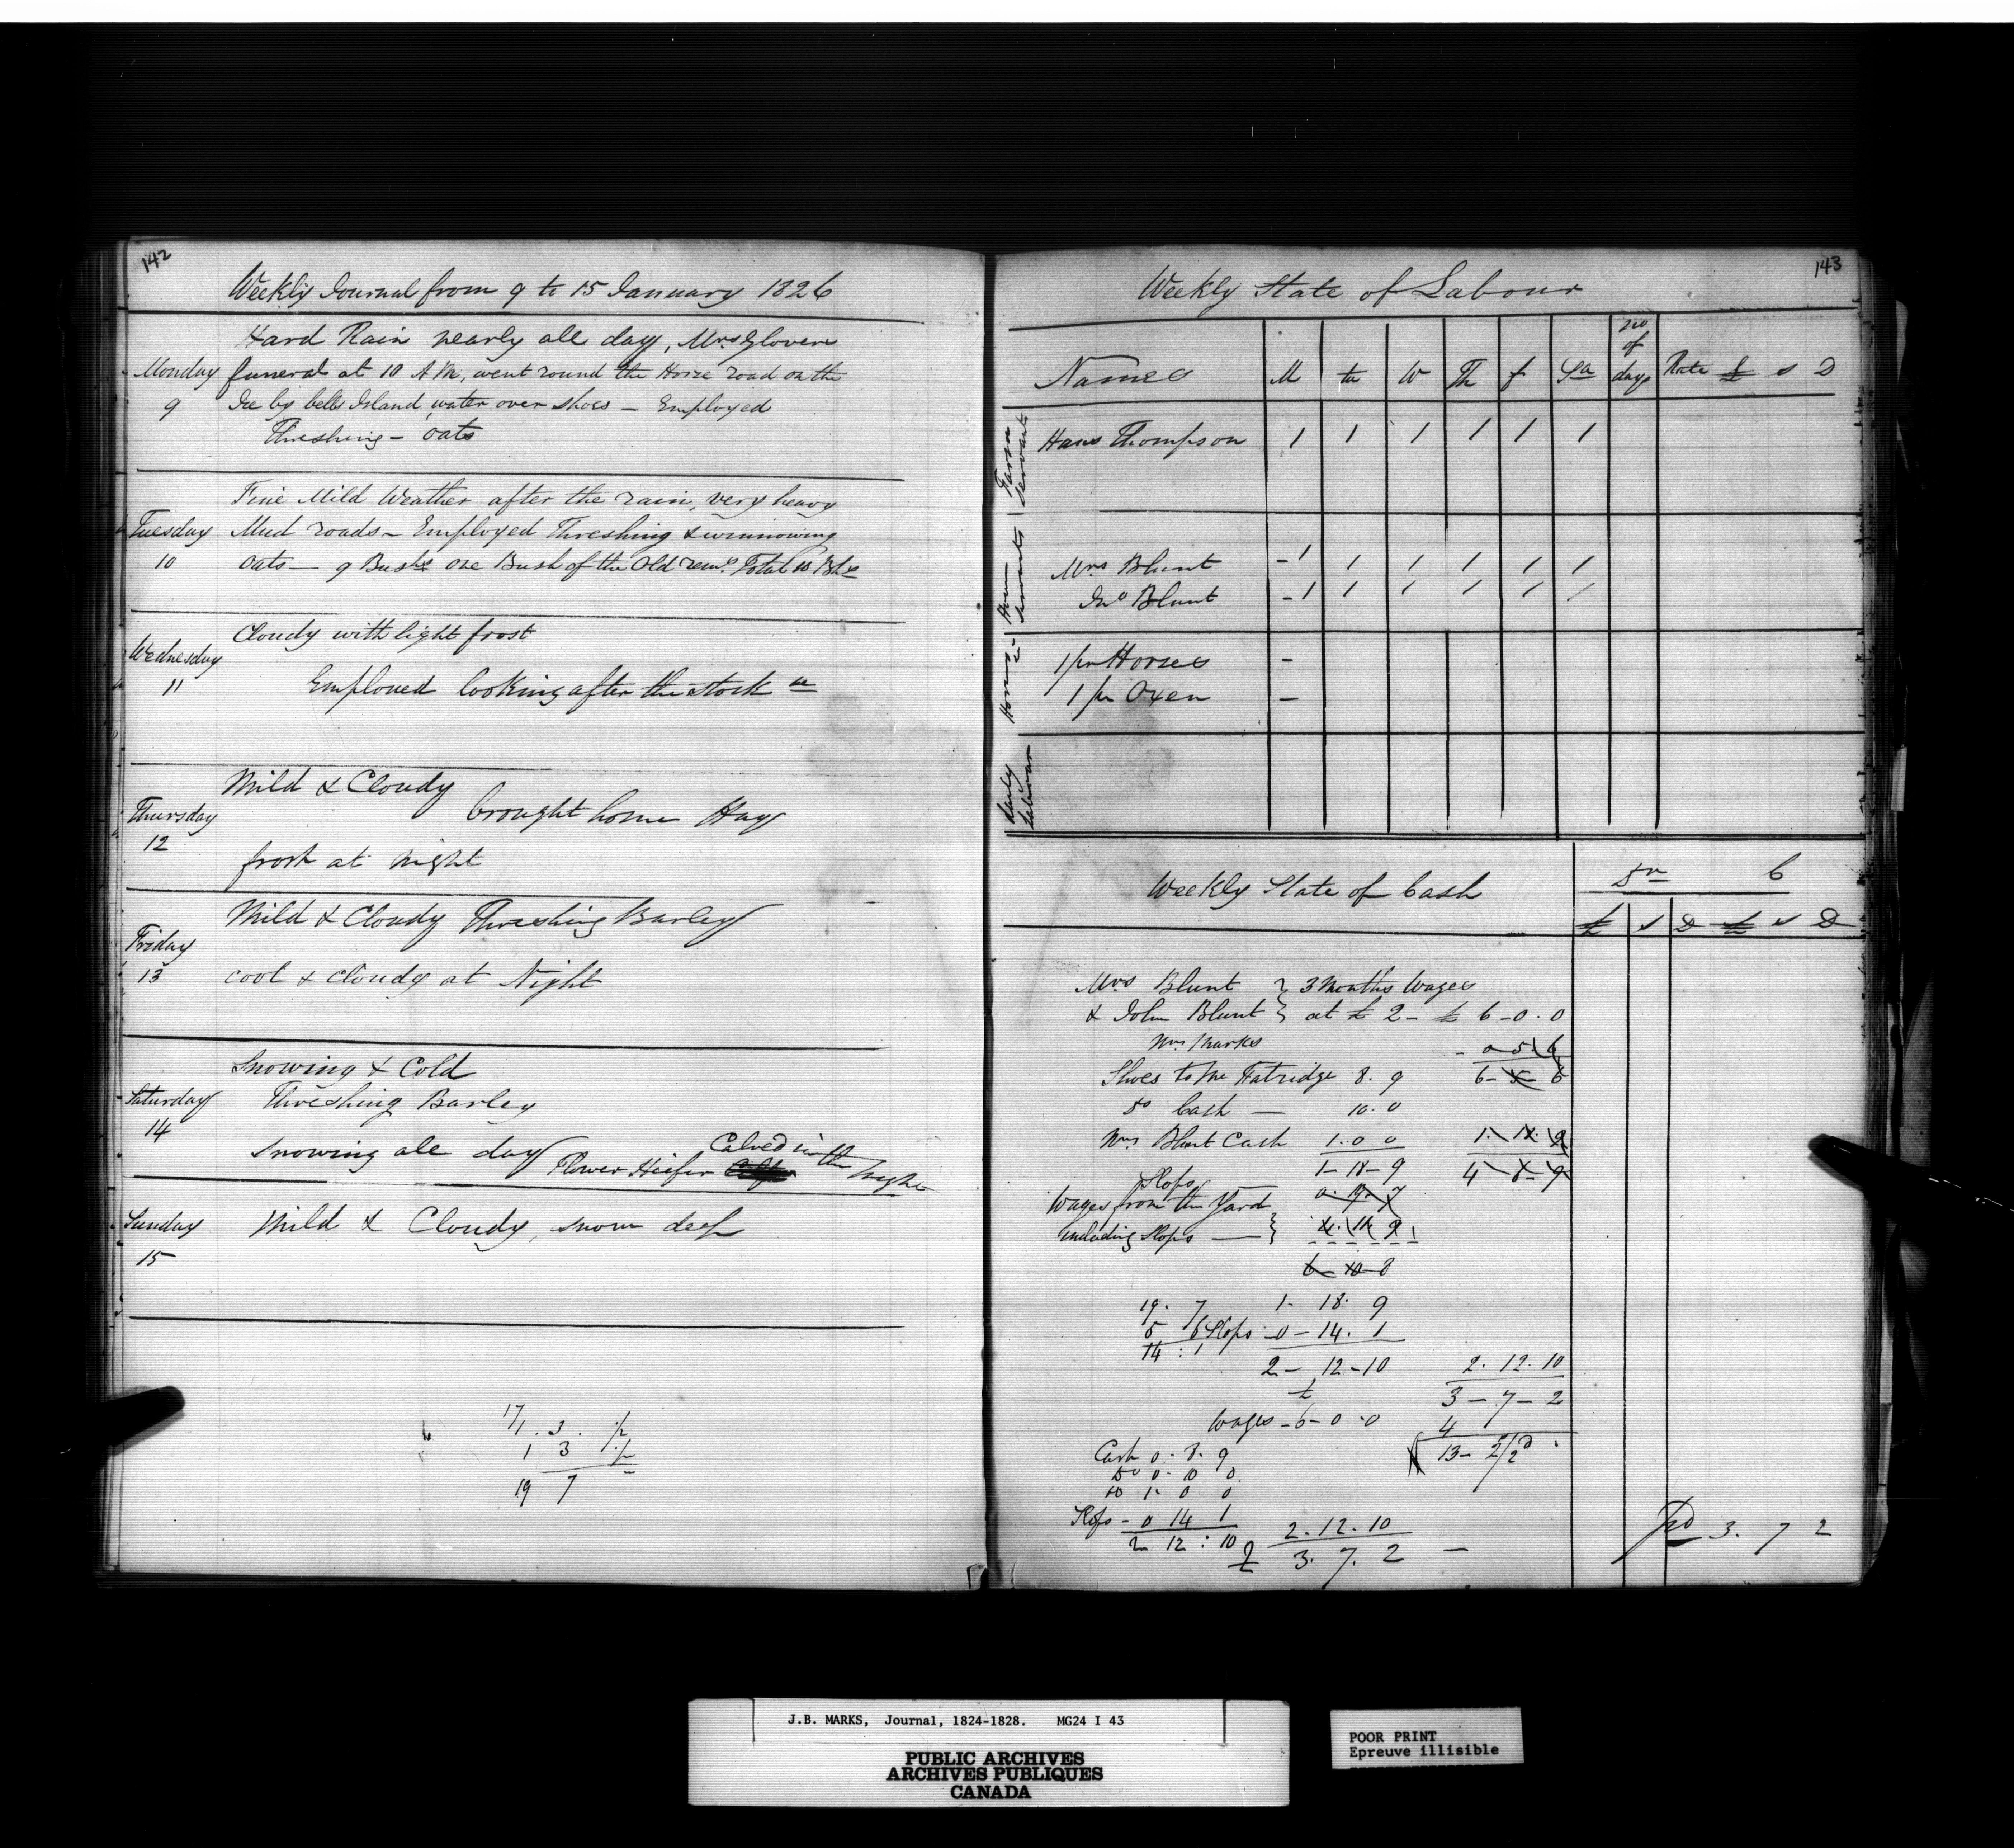 142
Weekly Journal from 9 to 15 January 1826
Hard Rain nearly all day, Mrs Glovers
Monday funeral at 10 A M, went round the Horse road on the
9 Ice by bells Island, water over shoes — Employed
Threshing — Oats
Fine Mild Weather after the rain, very heavy
Tuesday Mud roads — Employed Threshing & winnowing
10 Oats — 9 Bushs One Bush of the Old Total 10 Bhs
Cloudy with light frost
Wednesday
11 Employed looking after the stock
Mild & Cloudy
Thursday brought home Hay
12
frost at night
Mild & Cloudy Threshing Barley
Friday
13 cool & cloudy at Night
Snowing & Cold
Saturday Threshing Barley
14
Snowing all day Flower Heifer Calved in the night
Sunday Mild & Cloudy, snow deep
15
17
1 . 3 .
1 3
19 7
143
Weekly State of Labour
Names M tu W Th f Sa no of days Rate £ s D
Farm Servants
Hans Thompson 1 1 1 1 1 1
House Servants
Mrs Blunt – 1 1 1 1 1 1
Jno Blunt – 1 1 1 1 1 1
Horses
1 pr Horses –
1 pr Oxen –
Daily Labour
Weekly State of Cash Dr C
£ s D £ s D
Mrs Blunt } 3 Months Wages
& John Blunt } at £ 2 – £ 6 – 0 . 0
Mrs Marks – 0 5 6
Shoes to Mr Hatridge 8 . 9 6 – 5 – 6
Do Cash — 10 . 0
Mrs Blunt Cash 1 . 0 0 1 . 18 . 9
1 – 18 – 9 4 – 8 – 9
Slops 0 . 19 . 7
Wages from the Yard
including Slops — }
6 – 10 – 8
19 . 7 1 – 18 . 9
5 6 Slops – 0 – 14 . 1
14 : 1 2 – 12 – 10 2 . 12 . 10
£ 3 – 7 – 2
Wages – 6 – 0 . 0 4
Cash 0 . 8 . 9 13 – 2/2
Do 0 – 10 0
Do 1 – 0 0
Slops – 0 14 1 2 . 12 . 10
2 12 : 10 £ 3 . 7 . 2 — pd 3 . 7 2
J.B. MARKS, Journal, 1824-1828. MG24 I 43
PUBLIC ARCHIVES
ARCHIVES PUBLIQUES
CANADA
POOR PRINT
Epreuve illisible